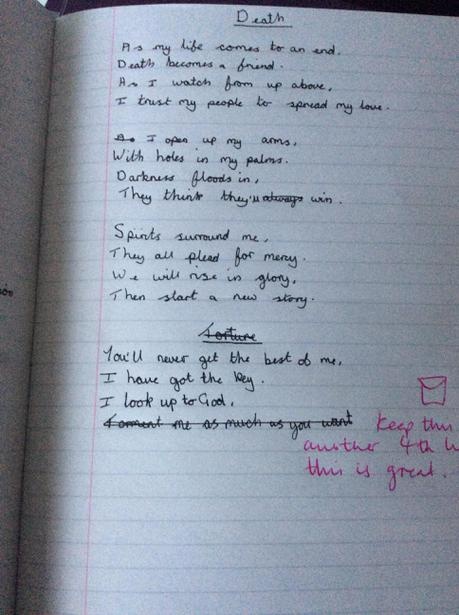 Death
As my life comes to an end.
Death becomes a friend.
As I watch from up above,
I trust my people to spread my love.
As I open up my arms,
With holes in my palms.
Darkness floods in,
They think they'll always win.
Spirits surround me,
They all plead for mercy.
We will rise in glory,
Then start a new story.
Torture
You'll never get the best of me,
I have got the key.
I look up to God,
Torment me as much as you want
Keep this
another 4th
this is great.